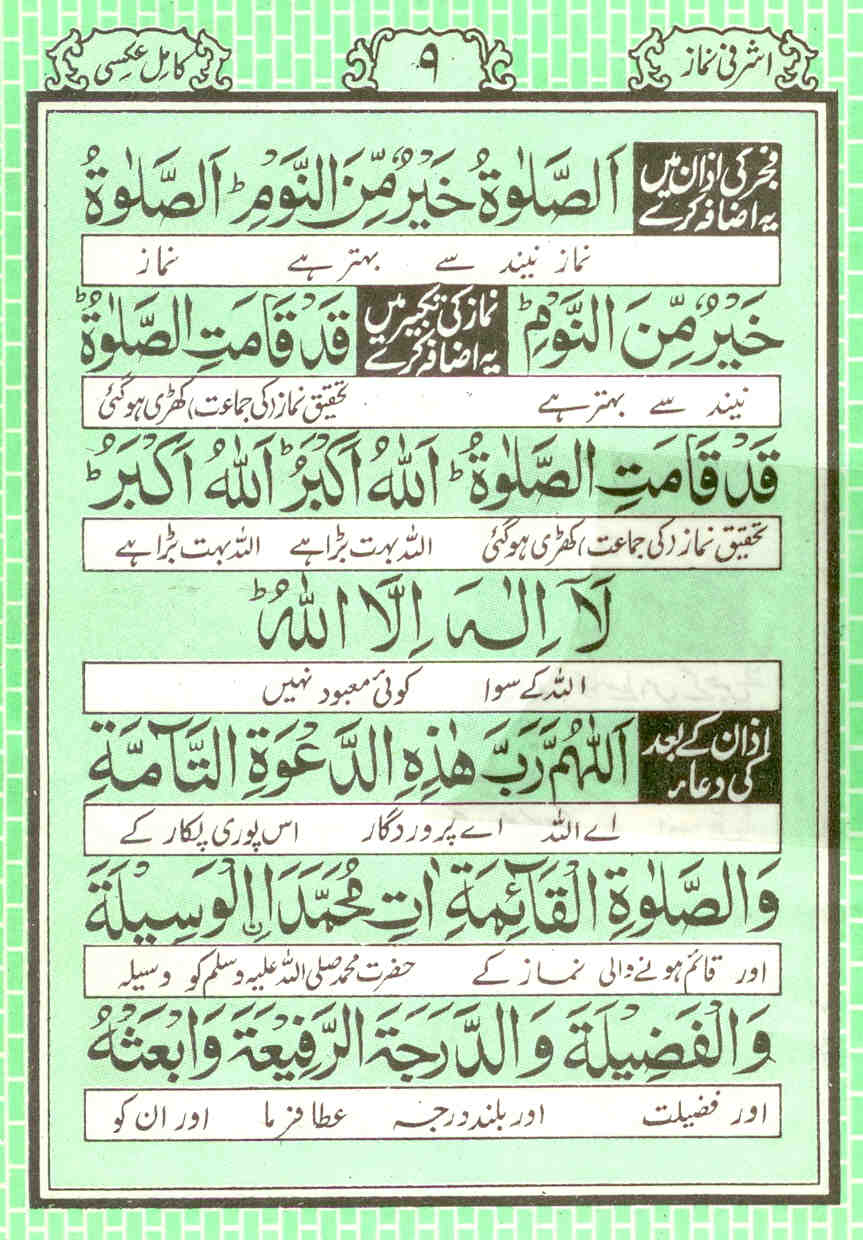 اشرفی نماز ۹ کامل عکسی
فجر کی اذان میں یہ اضافہ کرے اَلصَّلٰوةُ خَيْرٌ مِّنَ النَّوْمِ ؕ اَلصَّلٰوةُ
نماز نیند سے بہتر ہے نماز
خَيْرٌ مِّنَ النَّوْمِ ؕ نماز کی تکبیر میں یہ اضافہ کرے قَدْ قَامَتِ الصَّلٰوةُ ؕ
نیند سے بہتر ہے تحقیق نماز (کی جماعت) کھڑی ہوگئی
قَدْ قَامَتِ الصَّلٰوةُ ؕ اَللّٰهُ اَكْبَرُ ؕ اَللّٰهُ اَكْبَرُ ؕ
تحقیق نماز (کی جماعت) کھڑی ہوگئی اللہ بہت بڑا ہے اللہ بہت بڑا ہے
لَآ اِلٰهَ اِلَّا اللّٰهُ ؕ
اللہ کے سوا کوئی معبود نہیں
اذان کے بعد کی دعاء اَللّٰهُمَّ رَبَّ هٰذِهِ الدَّعْوَةِ التَّآمَّةِ
اے اللہ اے پروردگار اس پوری پکار کے
وَالصَّلٰوةِ الْقَآئِمَةِ اٰتِ مُحَمَّدَاۨ الْوَسِيْلَةَ
اور قائم ہونے والی نماز کے حضرت محمد صلی اللہ علیہ وسلم کو وسیلہ
وَالْفَضِيْلَةَ وَالدَّرَجَةَ الرَّفِيْعَةَ وَابْعَثْهُ
اور فضیلت اور بلند درجہ عطا فرما اور ان کو